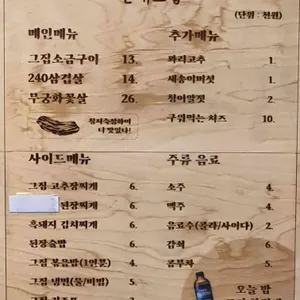 (단위 : 천원)
메인메뉴
그집소금구이 13.
240삼겹살 14.
무궁화꽃살 26.
참지숙성하여
더 맛있다!
추가메뉴
꽈리고추 1.
새송이버섯 1.
청어알젓 2.
구워먹는 치즈 10.
사이드메뉴
그집 고추장찌개 6.
된장찌개 6.
흑돼지 김치찌개 6.
된장술밥 6.
그집 볶음밥(1인분) 4.
그집 냉면(물/비빔) 5.
주류 음료
소주 4.
맥주 4.
음료수(콜라/사이다) 2.
감쇠 6.
콤부차 5.
오늘 밤